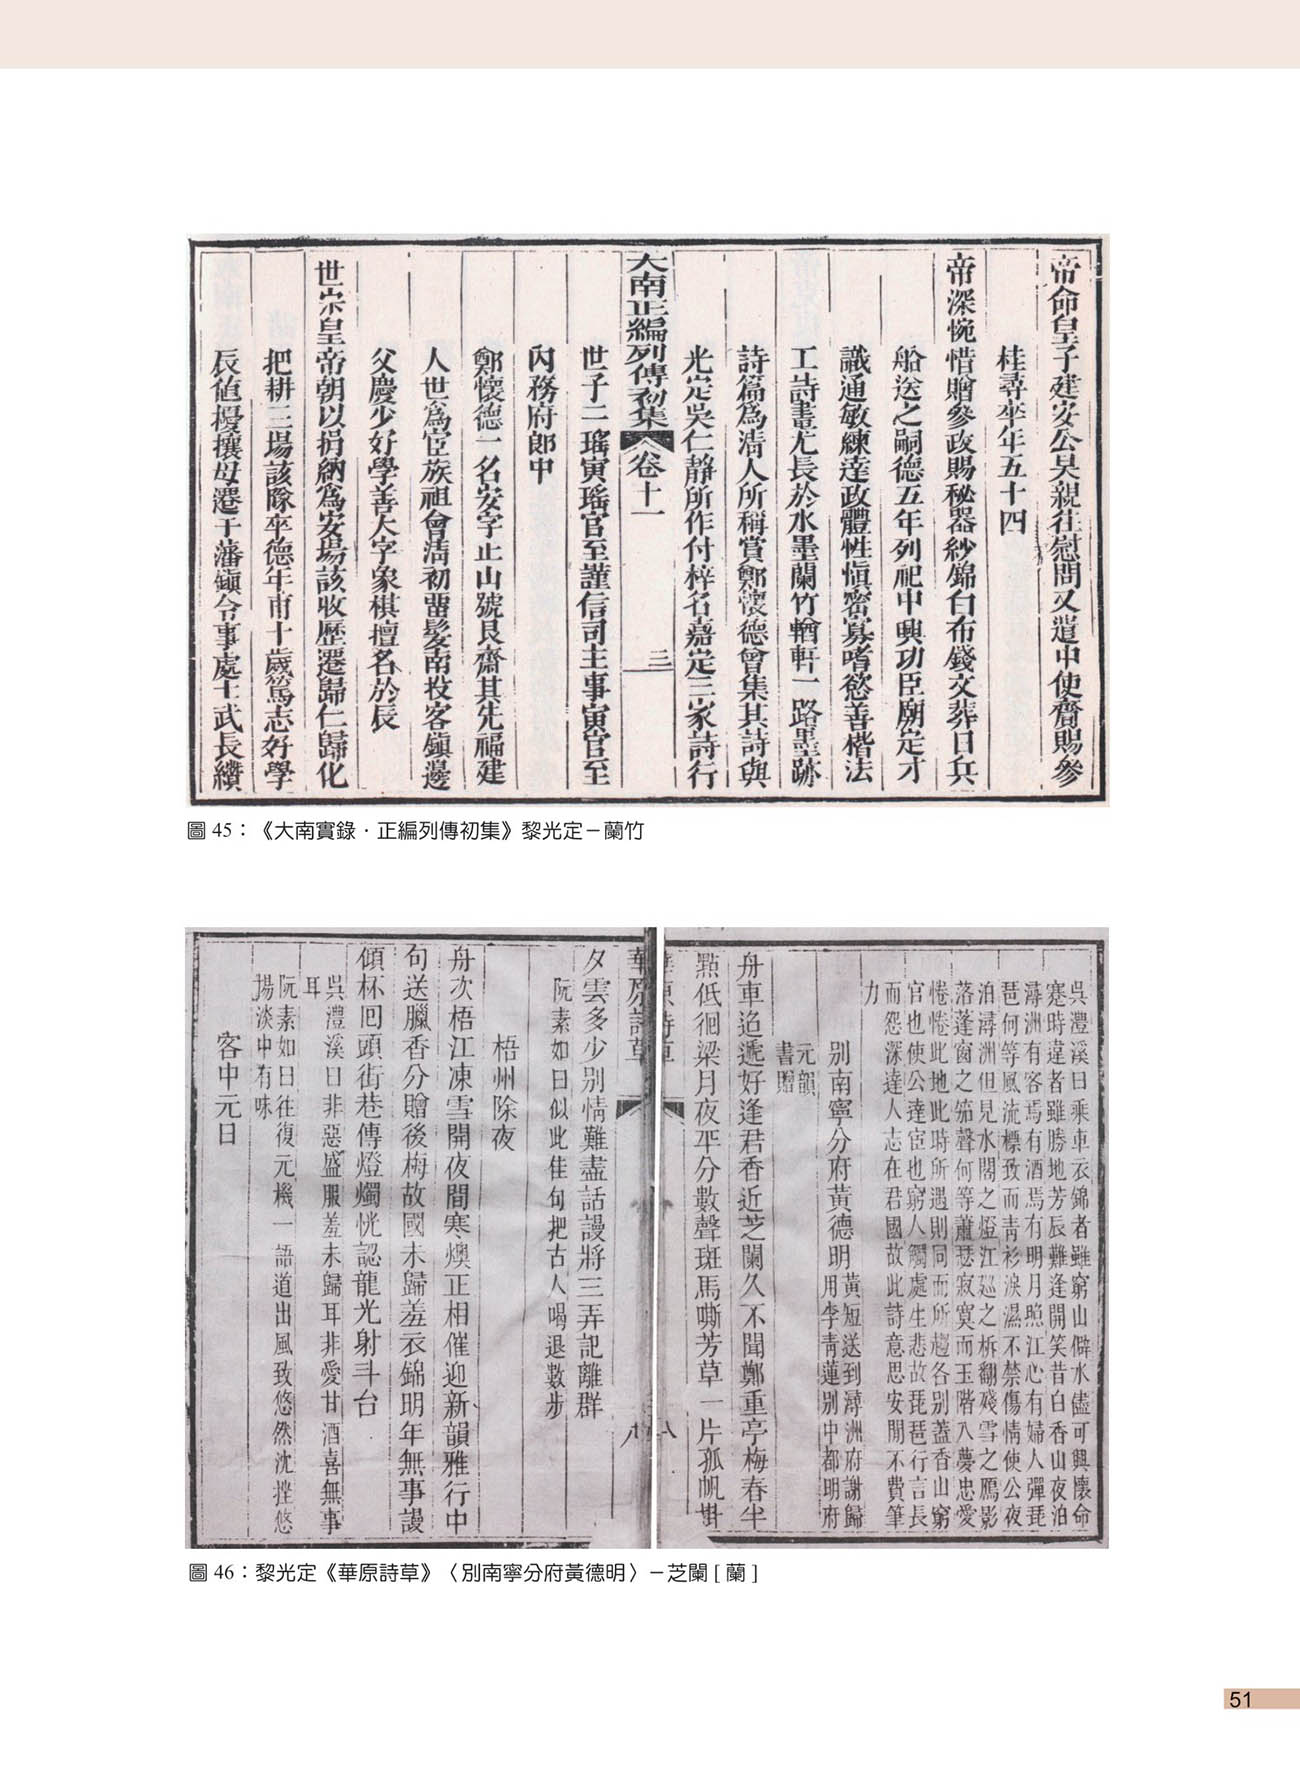 帝命皇子建安公昊親往慰問又遣中使齎賜參
桂尋卒年五十四
帝深惋惜贈參政賜秘器紗錦白布錢文葬日兵
船送之嗣德五年列祀中興功臣廟定才
識通敏練達政體性愼密寡嗜慾善楷法
工詩畫尤長於水墨蘭竹輶軒一路墨跡
詩篇爲淸人所稱賞鄭懷德曾集其詩與
光定吳仁靜所作付梓名嘉定三家詩行
大南正編列傳初集 卷十一 三
世子二瑤寅瑤官至謹信司主事寅官至
內務府郞中
鄭懷德一名安字止山號艮齋其先福建
人世爲宦族祖會淸初畱髮南投客鎭邊
父慶少好學善大字象棋擅名於辰
世宗皇帝朝以捐納爲安場該收歷遷歸仁歸化
把耕三場該隊卒德年甫十歲篤志好學
辰値擾攘母遷于藩鎭令事處士武長纘
圖 45：《大南實錄．正編列傳初集》黎光定－蘭竹
吳灃溪曰乘車衣錦者雖窮山僻水儘可興懷命
蹇時違者雖勝地芳辰難逢開笑昔白香山夜泊
潯洲有客焉有酒焉有明月照江心有婦人彈琵
琶何等風流標致而靑衫淚濕不禁傷情使公夜
泊潯洲但見水閣之燈江廵之柝翻殘雪之鴈影
落蓬窗之笳聲何等蕭瑟寂寞而玉階入夢忠愛
惓惓此地此時所遇則同而所趨各別蓋香山窮
官也使公達宦也窮人觸處生悲故琵琶行言長
而怨深達人志在君國故此詩意思安閒不費筆
力
別南寧分府黃德明 黃短送到潯洲府謝歸用李靑蓮別中都明府
元韻書贈
舟車迨遞好逢君香近芝闌久不聞鄭重亭梅春半
㸃低徊梁月夜平分數聲斑馬嘶芳草一片孤帆掛
華原詩草 八
夕雲多少別情難盡話謾將三弄記離群
阮素如曰似此佳句把古人喝退數步
梧州除夜
舟次梧江凍雪開夜間寒燠正相催迎新韻雅行中
句送臘香分贈後梅故國未歸羞衣錦明年無事謾
傾杯囘頭街巷傳燈燭恍認龍光射斗台
吳灃溪曰非惡盛服羞未歸耳非愛甘酒喜無事
耳
阮素如曰往復元機一語道出風致悠然沈挫悠
揚淡中有味
客中元日
圖 46：黎光定《華原詩草》〈別南寧分府黃德明〉－芝闌 [ 蘭 ]
51